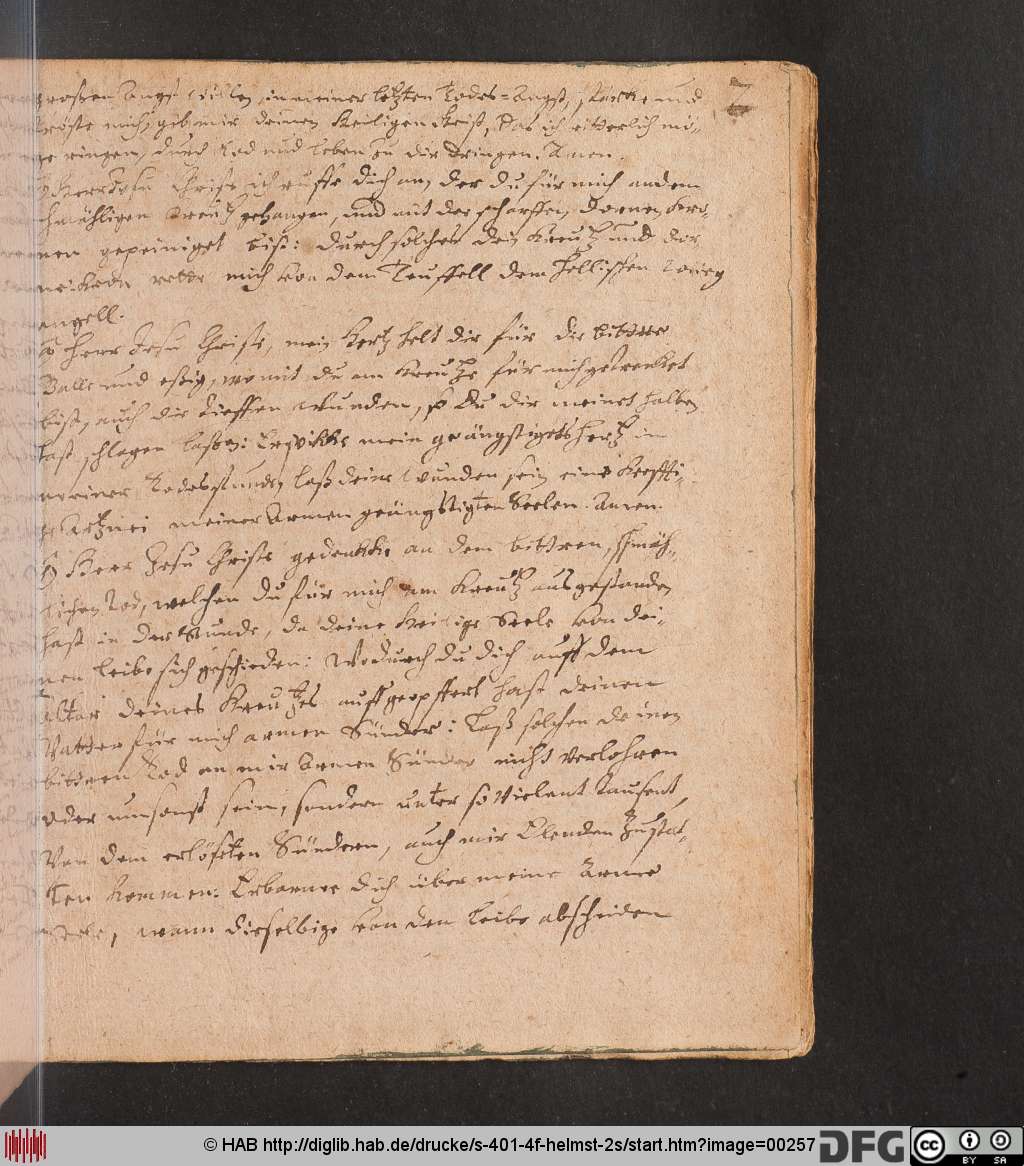 großen Angst willen, in meiner letzten Todes-Angst, stärcke und
tröste mich, gib mir deinen Heiligen Geist, Das ich ritterlich mö-
ge ringen, durch Tod und leben zu dir dringen. Amen.
O Herr Jesu Christ ich ruffe dich an, der du für mich an dem
schmähligen Kreutz gehangen, und mit der scharffen, Dornen, Kro-
nen gepeiniget bist: durch solches dein Kreutz und Dor-
ne Kron rette mich von dem Teuffell dem hellischen
angell.
O Herr Jesu Christe, mein Hertz helt dir für die bittre
Galle und eßig, womit du am Kreutze für mich getrencket
bist, auch die tieffen Wunden, so du dir meinet halben
hast schlagen laßen: Erquikke mein geängstigets Hertz in
meiner Todesstunden laß deine Wunden sein eine Kreffti-
ge Artznei meiner Armen geängstigten Seelen. Amen.
O Herr Jesu Christe gedenkke an den bittren, schmäh-
lichen Tod, welchen du für mich am Kreutz ausgestanden
hast in der Stunde, da deine Heilige Seele von dei-
nen leibe sich geschieden: Wodurch du dich auff dem
Altar deines Kreutzes auffgeopffert hast deinen
Vatter für mich armen Sünder: Laß solchen deinen
bittren Tod an mir Armen Sünder nicht verlohren
oder umsonst sein, sondern unter so vielent Tausent
Von dem erlöseten Sündern, auch mir Elenden zustat-
ten kommen: Erbarme dich über meine Arme
Seele, wann dieselbige von den leibe abscheiden
© HAB http://diglib.hab.de/drucke/s-401-4f-helmst-2s/start.htm?image=00257
DFG
cc
BY SA